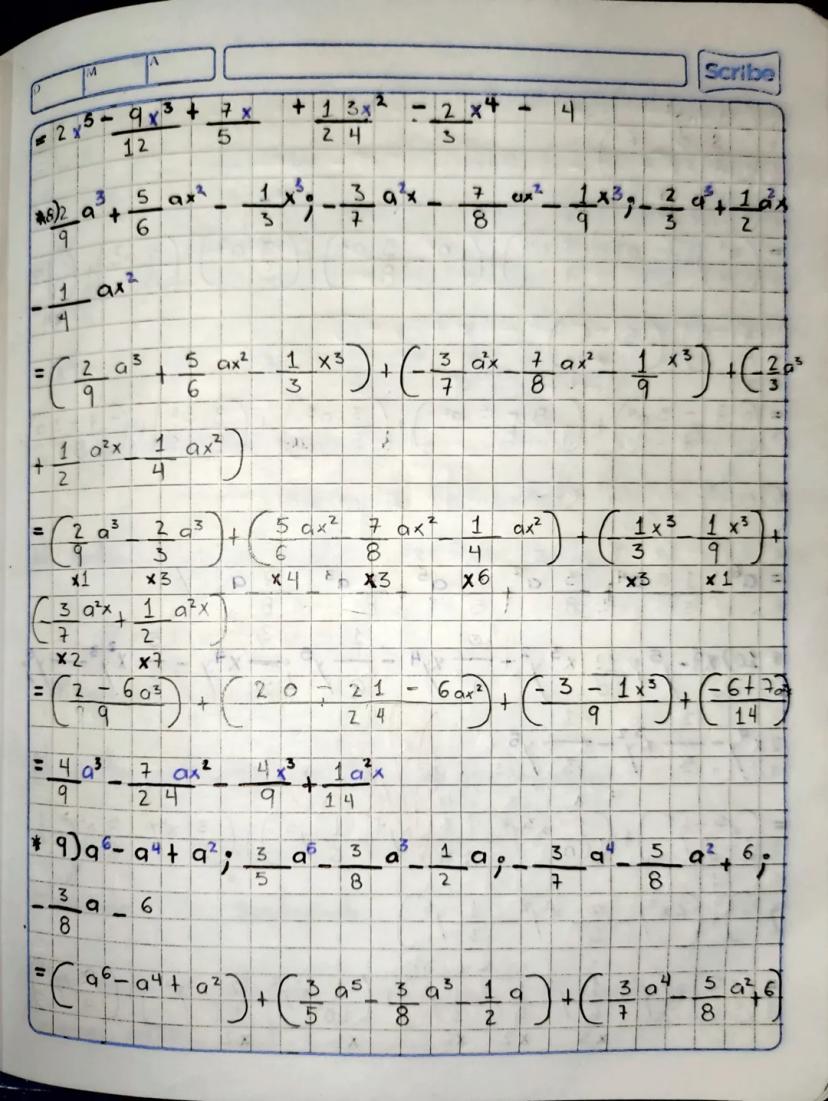 D M A Scribe
= 2x⁵ - 9x³/12 + 7x/5 + 13x²/24 - 2/3 x⁴ - 4
*8) 2/9 a³ + 5/6 ax² - 1/3 x³; - 3/7 a²x - 7/8 ax² - 1/9 x³; - 2/3 a³ + 1/2 a²x
- 1/4 ax²
= (2/9 a³ + 5/6 ax² - 1/3 x³) + (- 3/7 a²x - 7/8 ax² - 1/9 x³) + (- 2/3 a³
+ 1/2 a²x - 1/4 ax²)
= (2/9 a³ - 2/3 a³) + (5/6 ax² - 7/8 ax² - 1/4 ax²) + (- 1/3 x³ - 1/9 x³) +
x1 x3 x4 x3 x6 x3 x1
(- 3/7 a²x + 1/2 a²x)
x2 x7
= (2 - 6a³/9) + (20 - 21 - 6ax²/24) + (- 3 - 1x³/9) + (-6+7a²/14)
= 4/9 a³ - 7/24 ax² - 4x³/9 + 1a²x/14
* 9) a⁶ - a⁴ + a²; 3/5 a⁵ - 3/8 a³ - 1/2 a; - 3/7 a⁴ - 5/8 a² + 6;
- 3/8 a - 6
= (a⁶ - a⁴ + a²) + (3/5 a⁵ - 3/8 a³ - 1/2 a) + (- 3/7 a⁴ - 5/8 a² + 6)